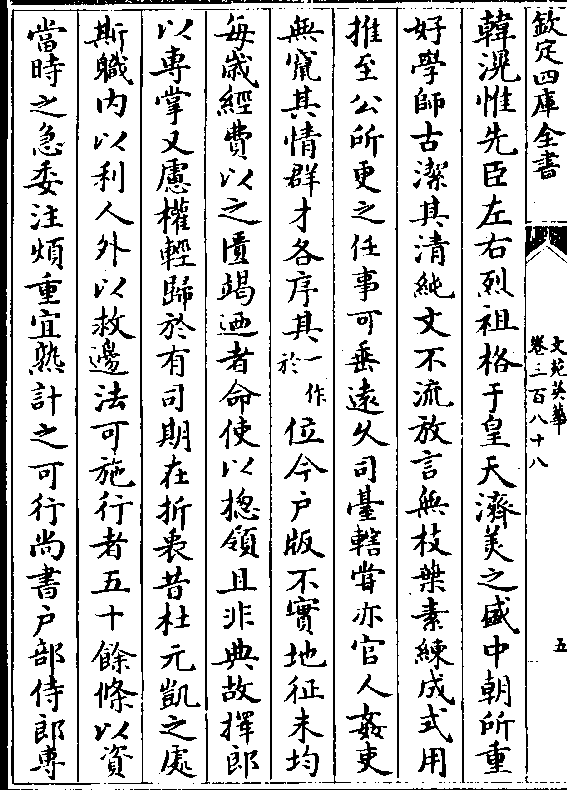 欽定四庫全書
文苑英華
卷三百八十八
五
韓滉惟先臣左右烈祖格于皇天濟美之盛中朝所重
好學師古潔其清純文不流放言無枝葉素練成式用
推至公所更之任事可垂遠久司臺轄嘗亦官人姦吏
無竄其情群才各序其一作於位今户版不實地征未均
每歳經費以之匱竭迺者命使以揔領且非典故擇郎
以專掌又慮權輕歸於有司期在折衷昔杜元凱之處
斯職内以利人外以救邊法可施行者五十餘條以資
當時之急委注煩重宜熟計之可行尚書户部侍郎專